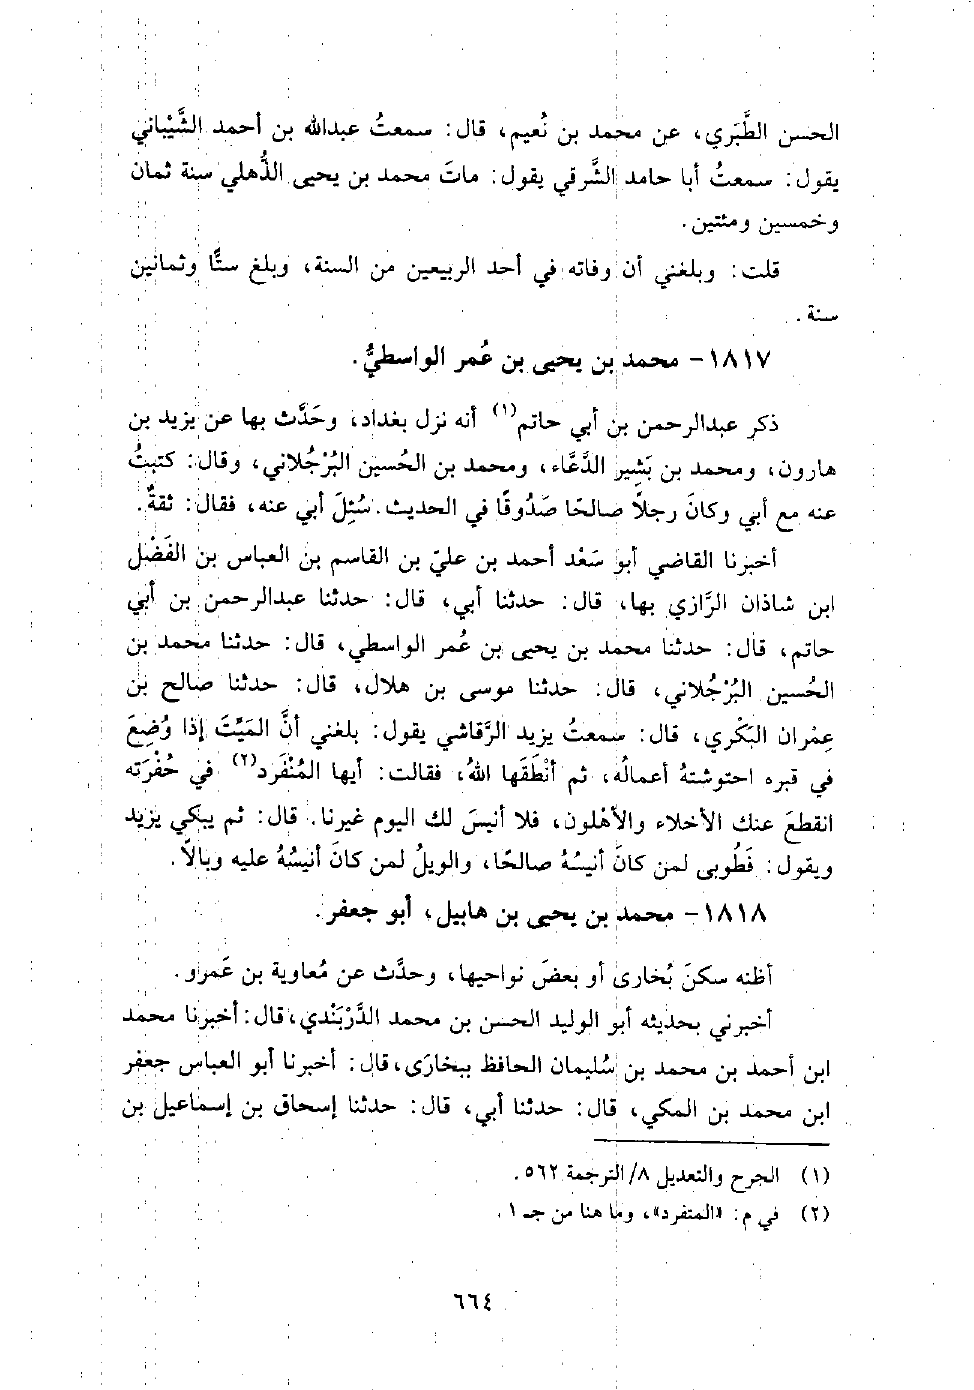 الحسن الطَّبَري، عن محمد بن نُعيم، قال: سمعتُ عبدالله بن أحمد الشَّيْباني
يقول: سمعتُ أبا حامد الشَّرقي يقول: ماتَ محمد بن يحيى الذُّهلي سنة ثمان
وخمسين ومئتين.
قلت: وبلغني أن وفاته في أحد الربيعين من السنة، وبلغ ستًّا وثمانين
سنة.
١٨١٧- محمد بن يحيى بن عُمر الواسطيُّ.
ذكر عبدالرحمن بن أبي حاتم(١) أنه نزل بغداد، وحَدَّث بها عن يزيد بن
هارون، ومحمد بن بَشِير الدَّعَّاء، ومحمد بن الحُسين البُرْجُلاني، وقال: كتبتُ
عنه مع أبي وكانَ رجلاً صالحًا صَدُوقًا في الحديث. سُئِلَ أبي عنه، فقال: ثقةٌ.
أخبرنا القاضي أبو سَعْد أحمد بن عليّ بن القاسم بن العباس بن الفَضْل
ابن شاذان الرَّازي بها، قال: حدثنا أبي، قال: حدثنا عبدالرحمن بن أبي
حاتم، قال: حدثنا محمد بن يحيى بن عُمر الواسطي، قال: حدثنا محمد بن
الحُسين البُرْجُلاني، قال: حدثنا موسى بن هلال، قال: حدثنا صالح بن
عِمْران البَكْري، قال: سمعتُ يزيد الرَّقاشي يقول: بلغني أنَّ المَيِّتَ إذا وُضِعَ
في قبره احتوشتهُ أعمالُه، ثم أنْطَقَها اللهُ، فقالت: أيها المُنْفَرد(٢) في حُفْرَته
انقطعَ عنك الأخلاء والأهْلون، فلا أنيسَ لك اليوم غيرنا. قال: ثم يبكي يزيد
ويقول: فَطُوبى لمن كانَ أنيسُهُ صالحًا، والويلُ لمن كانَ أنيسُهُ عليه وبالاً.
١٨١٨- محمد بن يحيى بن هابيل، أبو جعفر.
أظنه سكنَ بُخارى أو بعضَ نواحيها، وحدَّث عن مُعاوية بن عَمرو.
أخبرني بحديثه أبو الوليد الحسن بن محمد الدَّرْبَنْدي، قال: أخبرنا محمد
ابن أحمد بن محمد بن سُليمان الحافظ ببخارَى، قال: أخبرنا أبو العباس جعفر
ابن محمد بن المكي، قال: حدثنا أبي، قال: حدثنا إسحاق بن إسماعيل بن
(١) الجرح والتعديل ٨/ الترجمة ٥٦٢.
(٢) في م: «المتفرد»، وما هنا من جـ ١.
٦٦٤